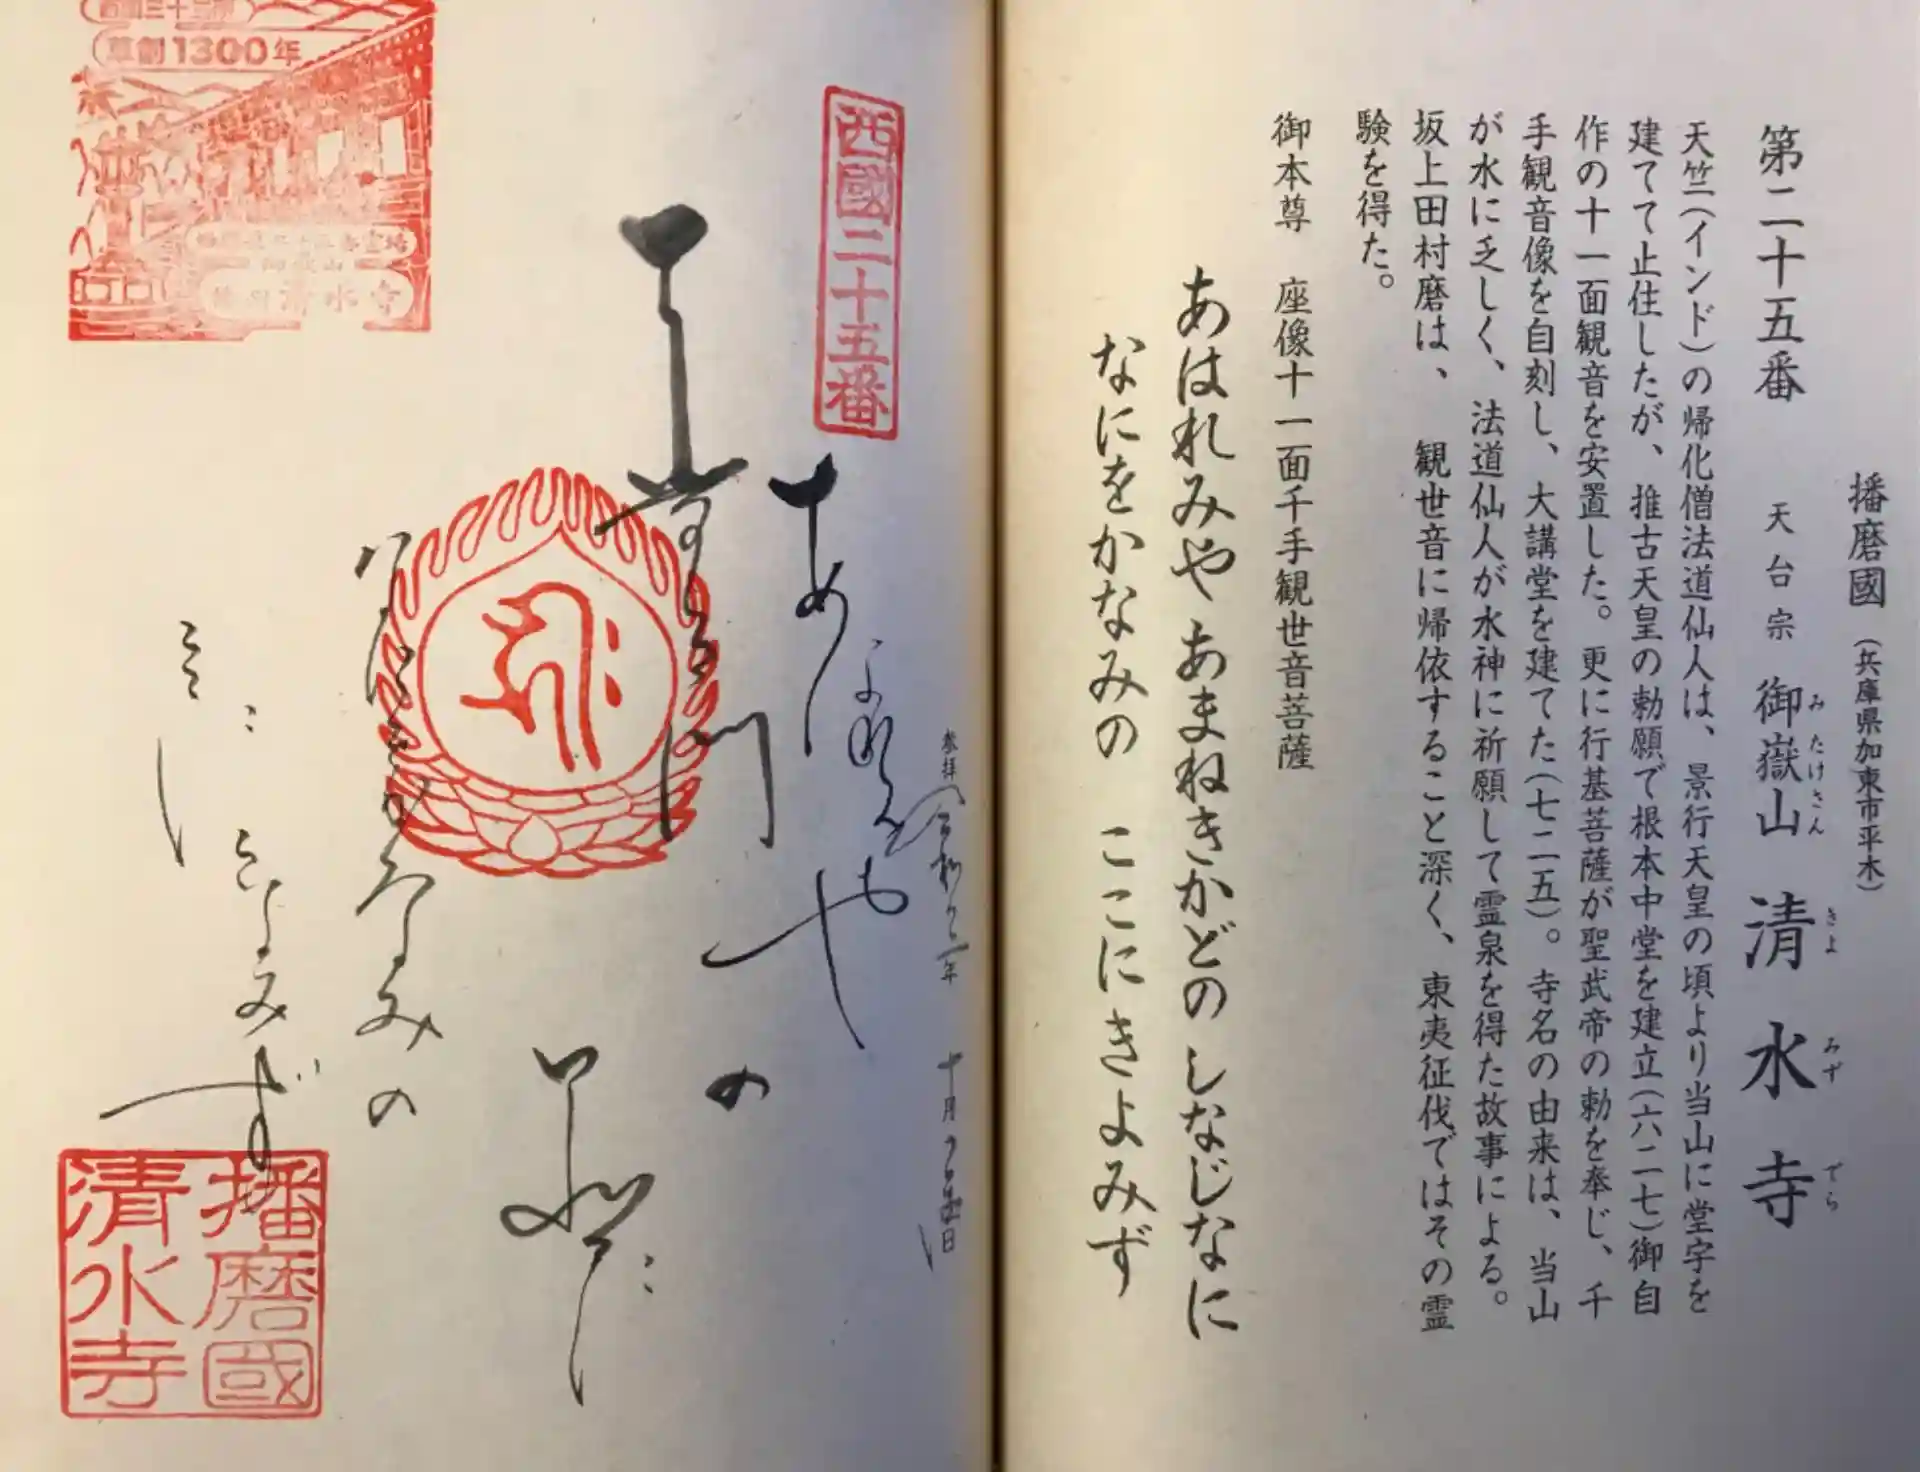 播磨國（兵庫県加東市平木）
第二十五番　天台宗　御嶽山　清水寺
みたけさん　きよみずでら
天竺（インド）の帰化僧法道仙人は、景行天皇の頃より当山に堂宇を
建てて止住したが、推古天皇の勅願で根本中堂を建立（六二七）御自
作の十一面観音を安置した。更に行基菩薩が聖武帝の勅を奉じ、千
手観音像を自刻し、大講堂を建てた（七二五）。寺名の由来は、当山
が水に乏しく、法道仙人が水神に祈願して霊泉を得た故事による。
坂上田村磨は、観世音に帰依すること深く、東夷征伐ではその霊
験を得た。
御本尊　座像十一面千手観世音菩薩
あはれみや あまねきかどの しなじなに
なにをかなみの ここにきよみず
参拝 令和二年 十月
西國二十五番
あはれみや
の
なみの
みず
草創1300年
清水寺
播磨國
清水寺